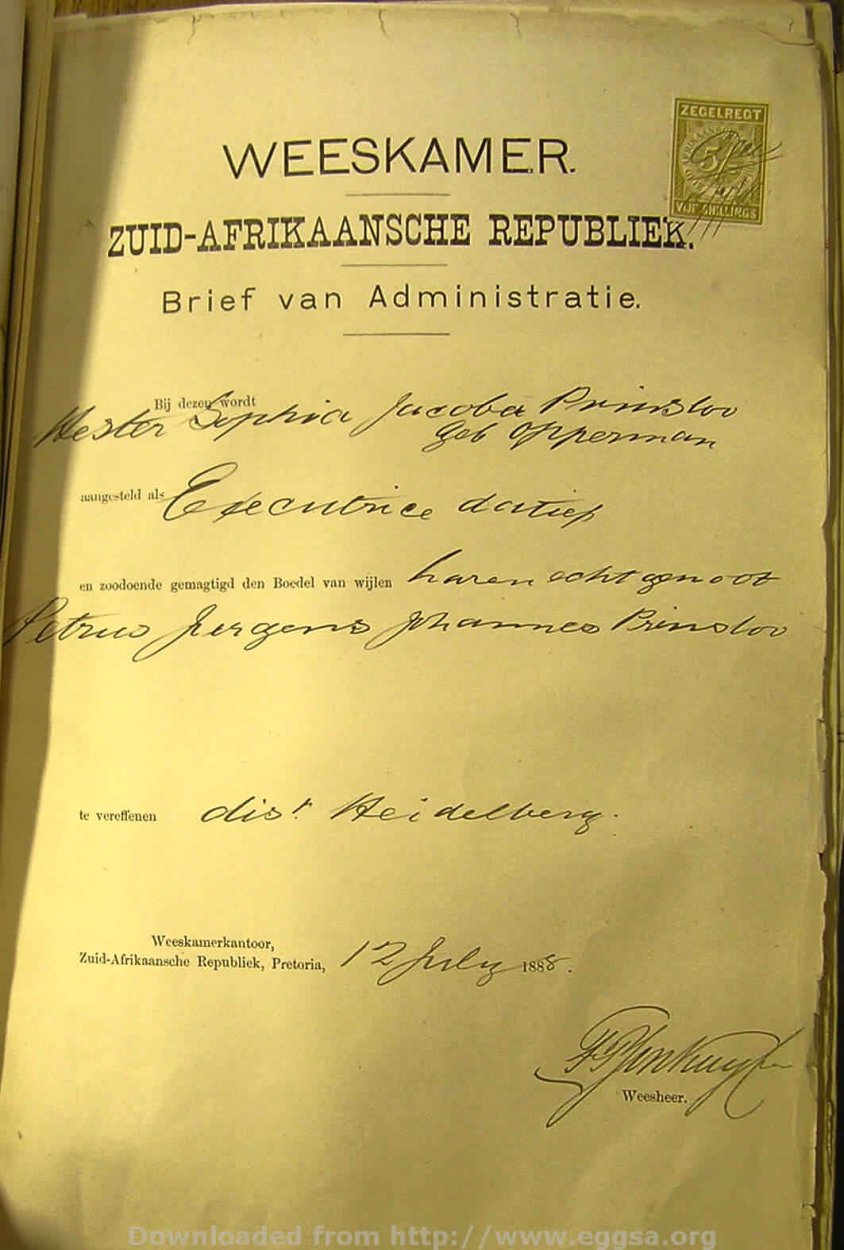 ZEGELREGT
5/
VIJF SHILLINGS
WEESKAMER.
ZUID-AFRIKAANSCHE REPUBLIEK.
Brief van Administratie.
Bij dezen wordt
Hester Sophia Jacoba Prinsloo
geb Opperman
aangesteld als Executrice datief
en zoodoende gemagtigd den Boedel van wijlen haren echtgenoot
Petrus Jurgens Johannes Prinsloo
te vereffenen dist Heidelberg.
Weeskamerkantoor,
Zuid-Afrikaansche Republiek, Pretoria, 12 July 1888.
Weesheer.
Downloaded from http://www.eggsa.org